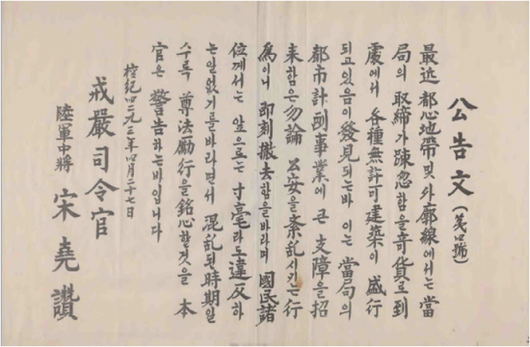 公告文 (第四號)
最近 都心地帶 및 外廓線에서는 當
局의 取締가 踈忽함을 奇貨로 到
處에서 各種無許可建築이 盛行
되고있음이 發見되는바 이는 當局의
都市計劃事業에 큰 支障을 招
来함은 勿論 公安을 紊乱시키는 行
爲이니 即刻撤去함을바라며 國民諸
位께서는 앞으로는 寸毫라도違反하
는일없기를바라면서 混乱된時期일
수록 尊法勵行을銘心할것을 本
官은 警告하는바입니다
檀紀四二九三年四月二十七日
戒嚴司令官
陸軍中將 宋堯讚